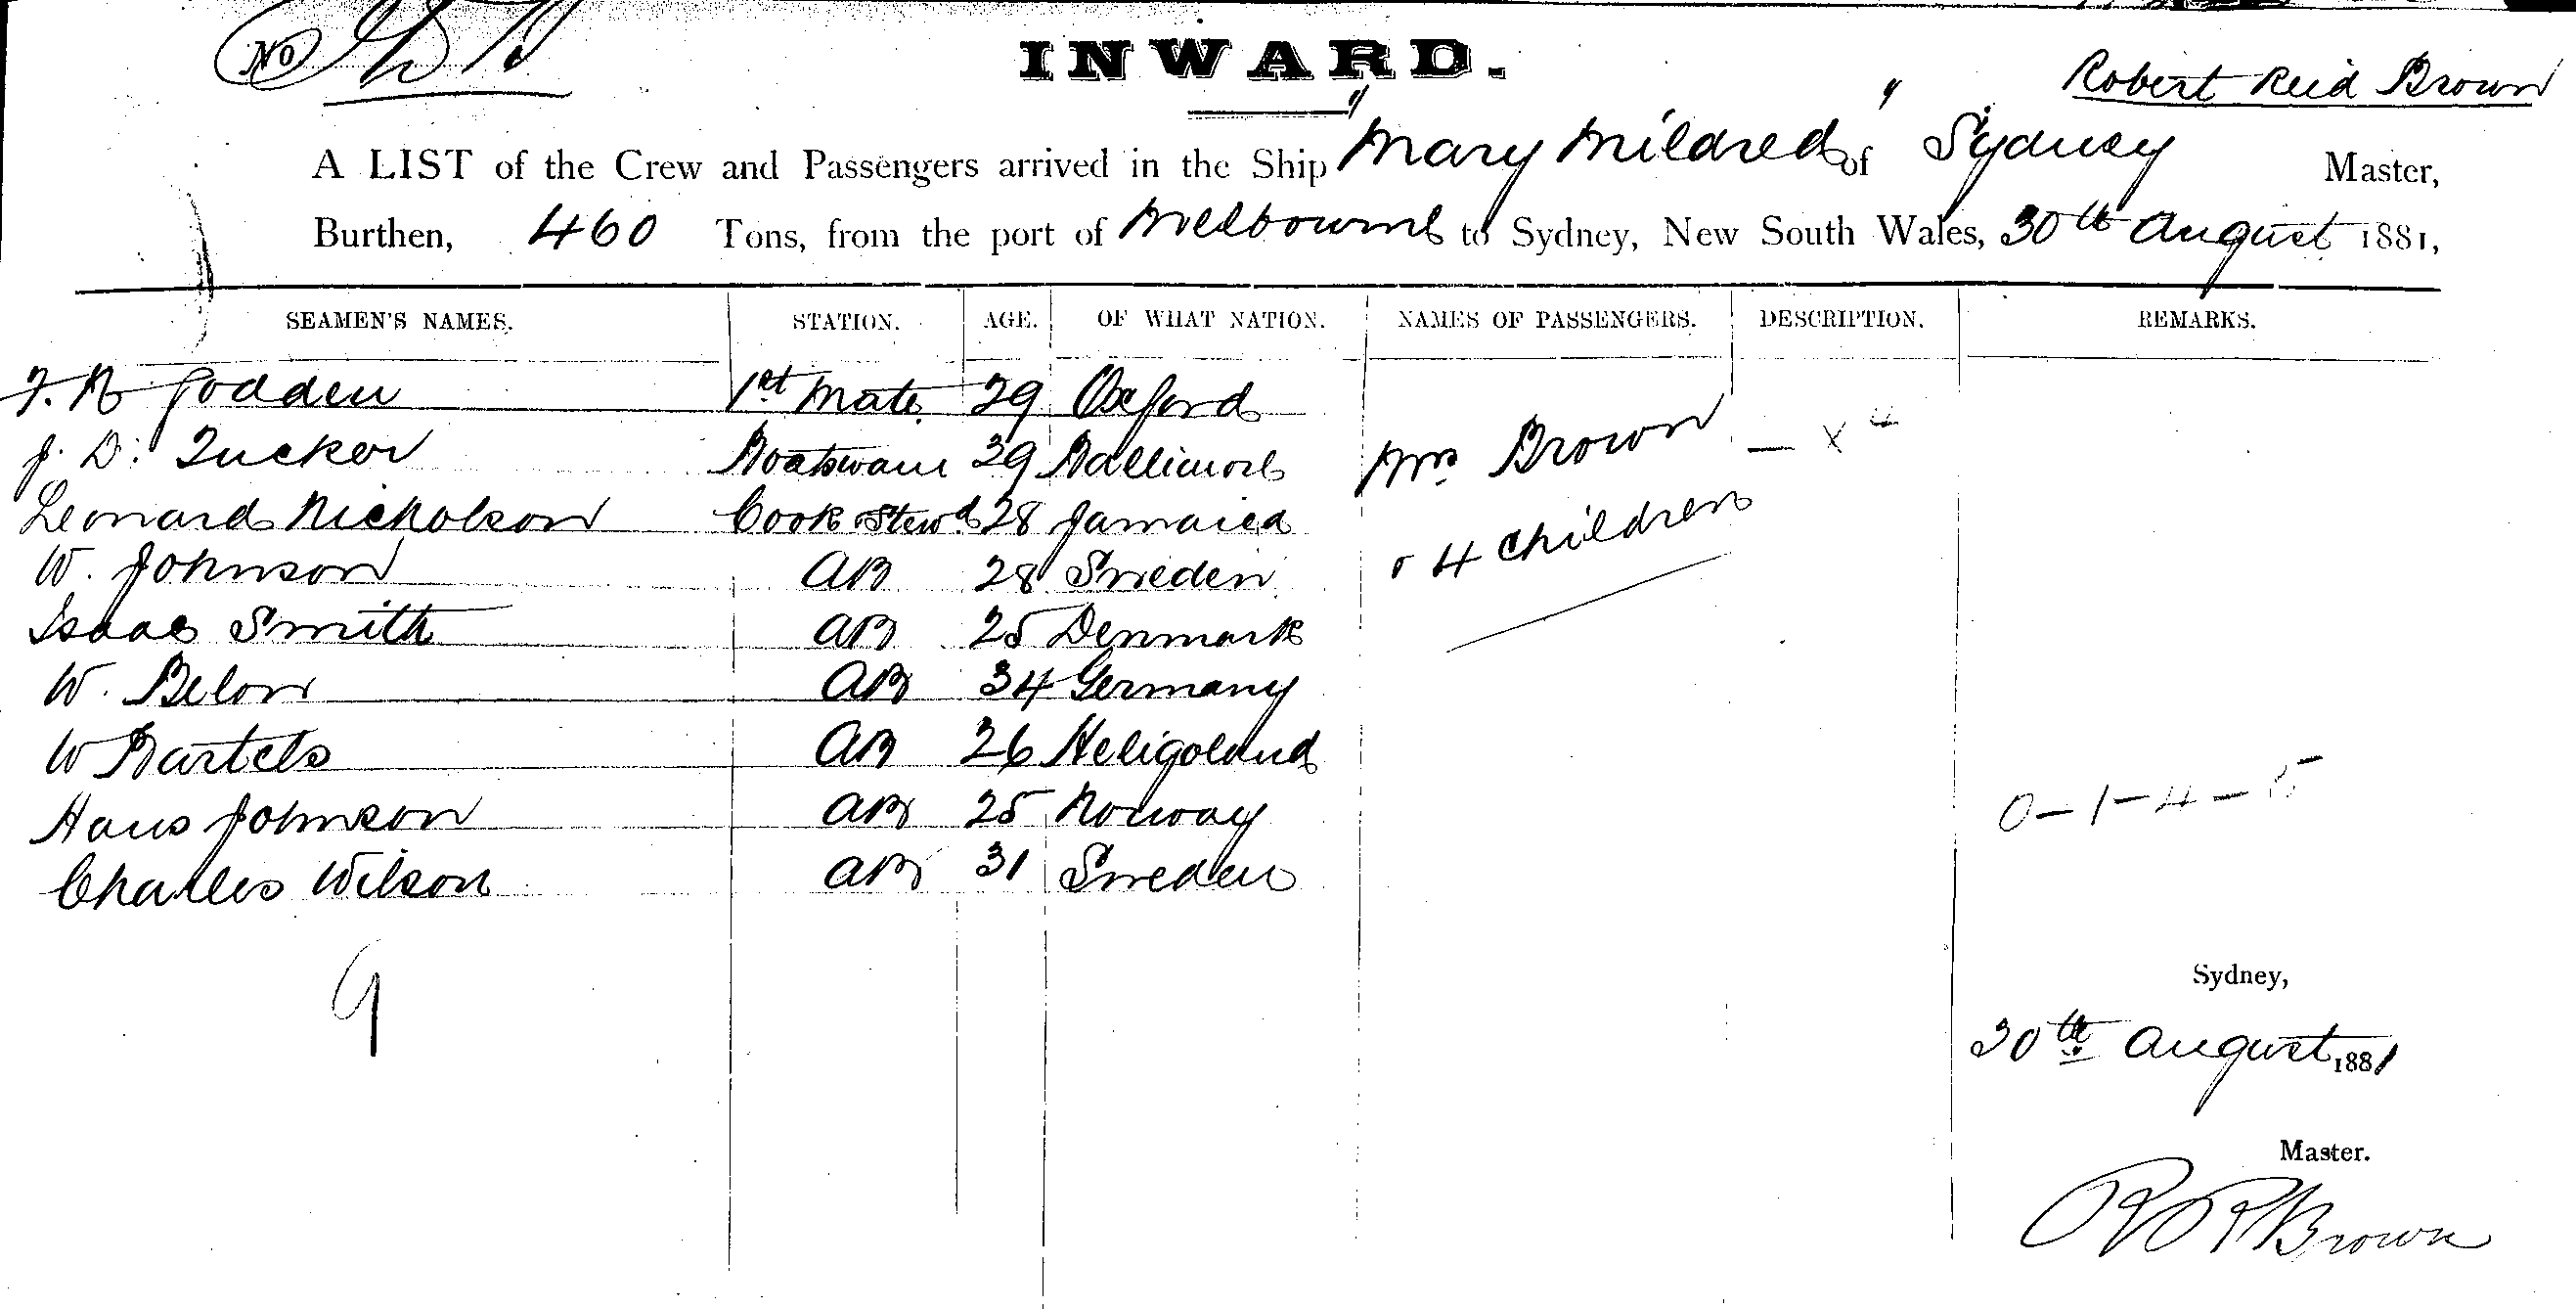 No
INWARD.
Robert Reid Brown
A LIST of the Crew and Passengers arrived in the Ship "Mary Mildred" of Sydney Master,
Burthen, 460 Tons, from the port of Melbourne to Sydney, New South Wales, 30th August 1881,
SEAMEN'S NAMES. STATION. AGE. OF WHAT NATION. NAMES OF PASSENGERS. DESCRIPTION. REMARKS.
Godden 1st Mate 29 Oxford
J. D. Tucker Boatswain 39 Baltimore Mrs Brown
Leonard Nicholson Cook & Stewd 28 Jamaica 4 Children
W. Johnson AB 28 Sweden
Isaac Smith AB 25 Denmark
W. Below AB 34 Germany
W Bartels AB 26 Heligoland
Hans Johnson AB 25 Norway 0-1-4-5
Charles Wilson AB 31 Sweden
9
Sydney,
30th August 1881
Master.
R R Brown